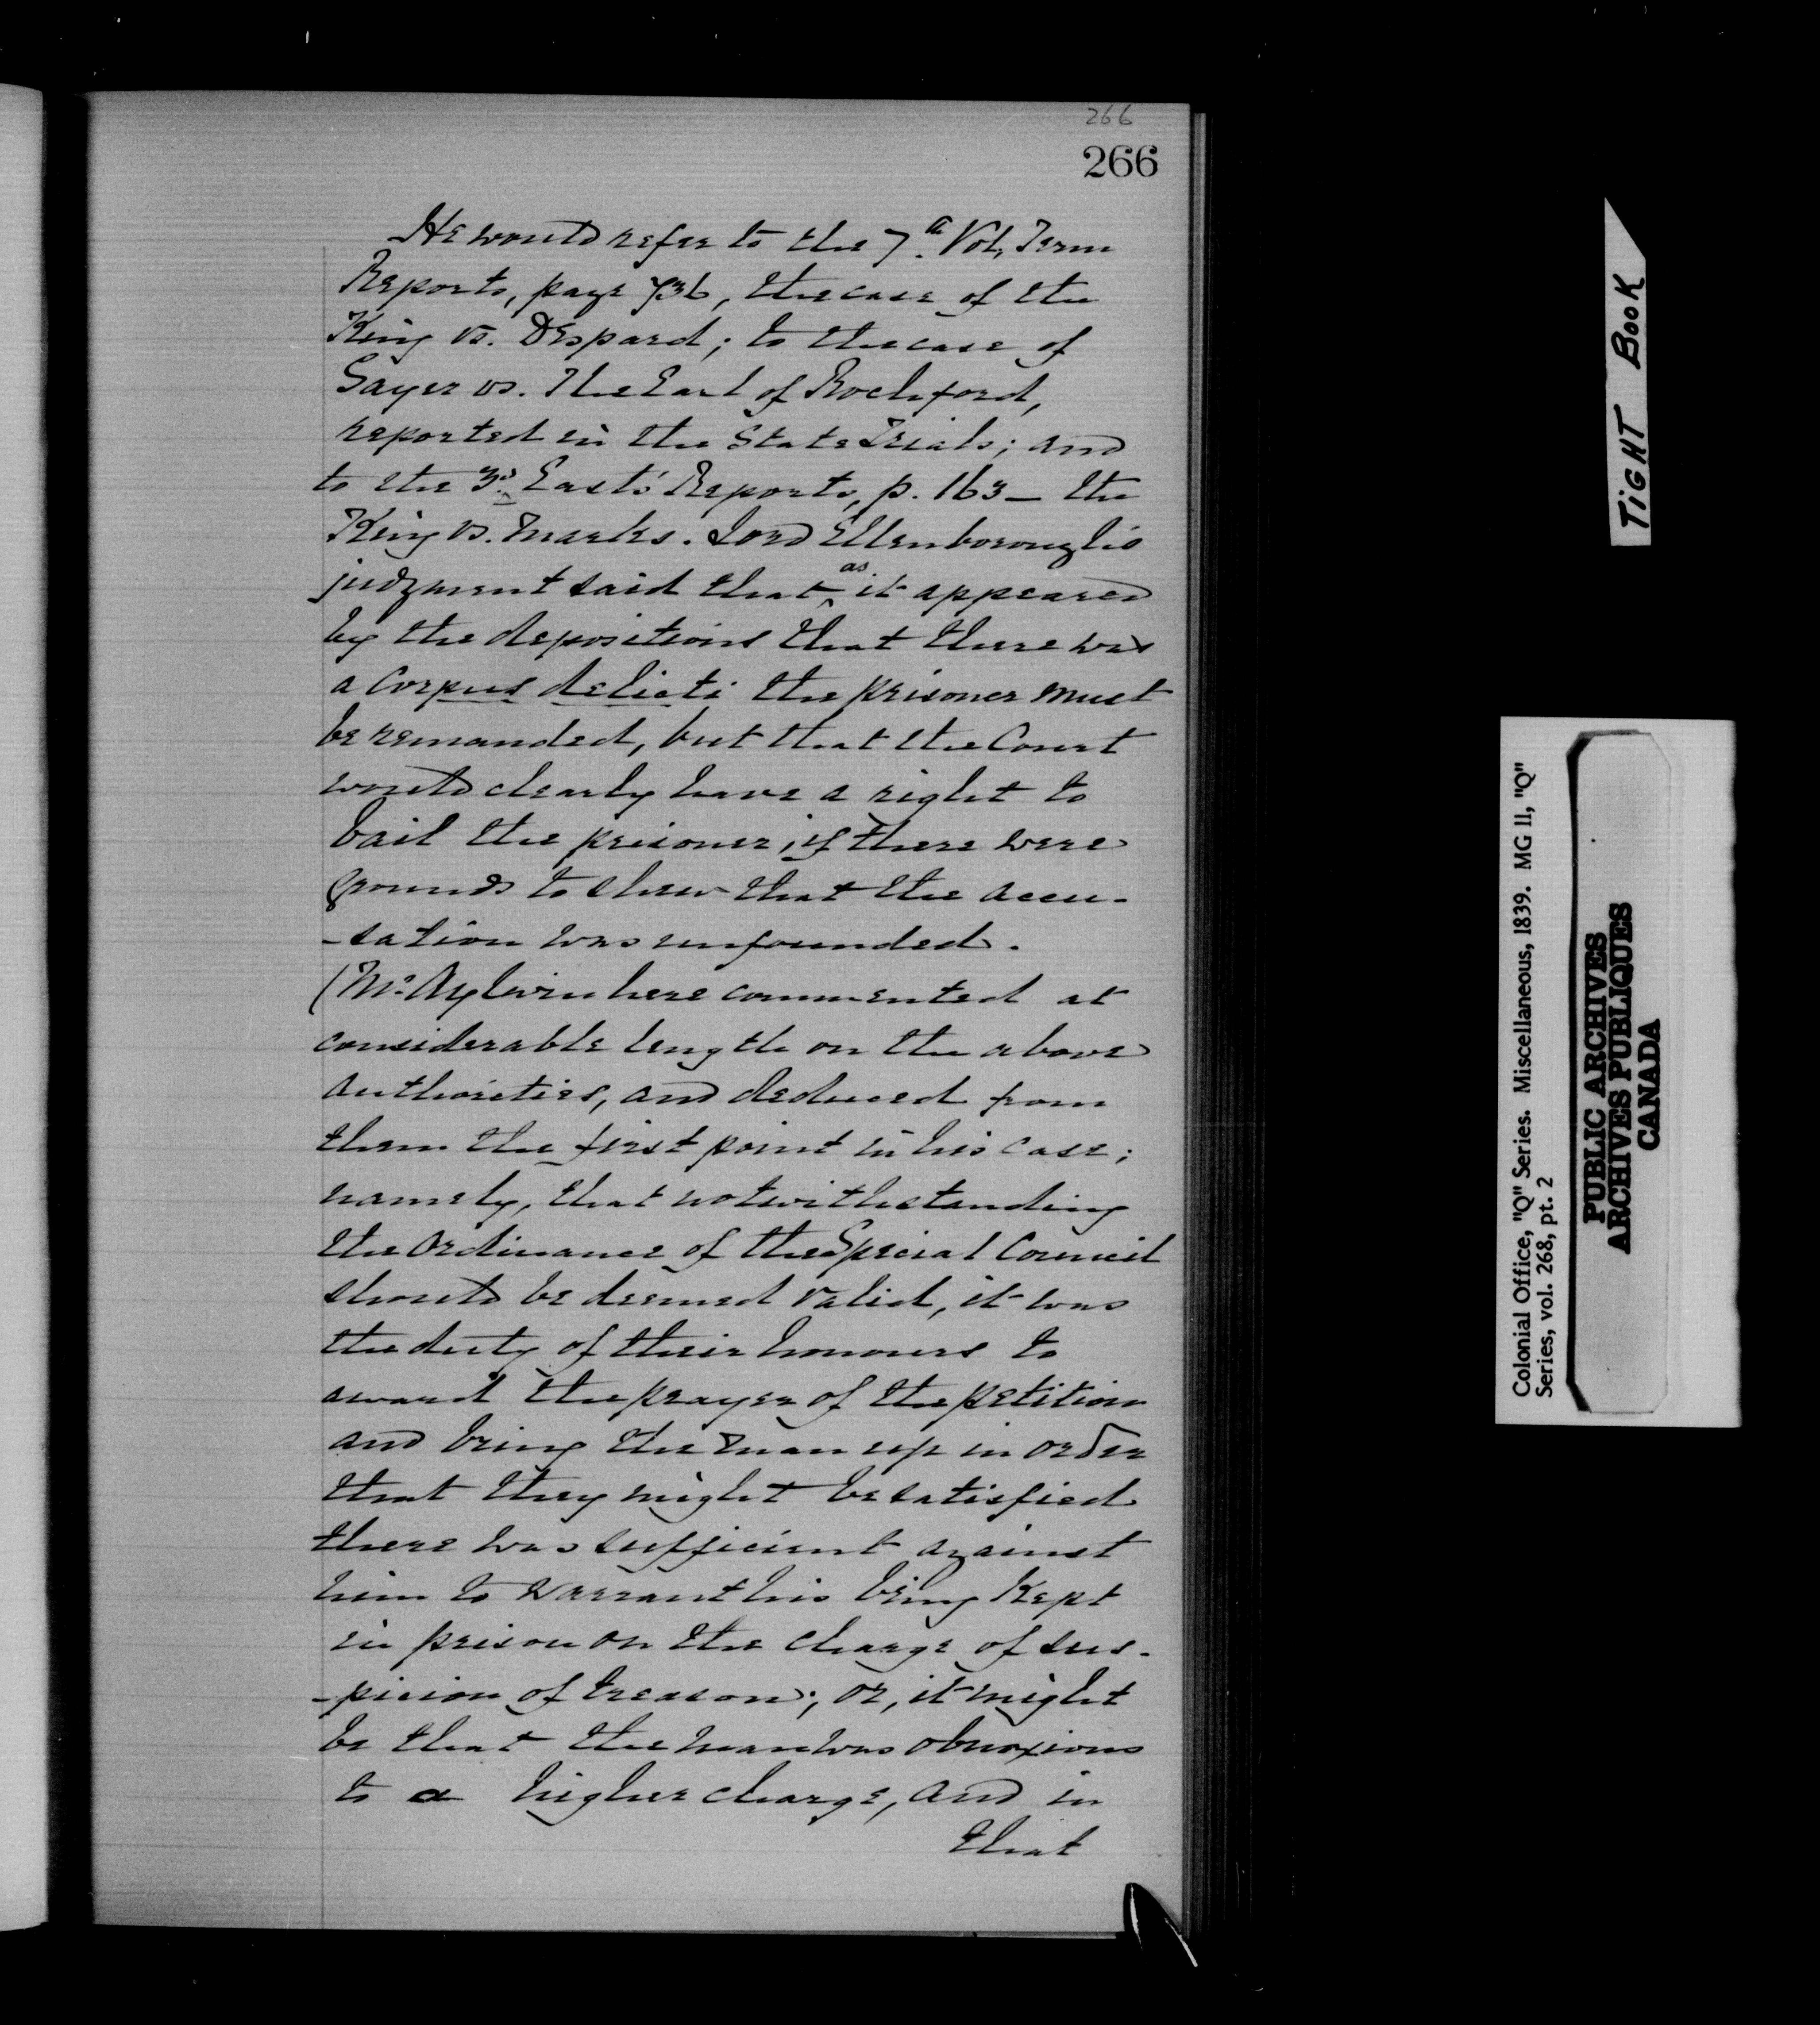 266
266
He would refer to the 7th. Vol, Term
Reports, page 736, the case of the
King vs. Despard; to the case of
Sayer vs. The Earl of Rochford,
reported in the State Trials; and
to the 3d. East's Reports, p. 163 — the
King vs. Marks. Lord Ellenborough's
judgment said that as it appeared
by the depositions that there was
a corpus delicti the prisoner must
be remanded, but that the Court
would clearly have a right to
bail the prisoner, if there were
grounds to shew that the accu-
-sation was unfounded.
(Mr. Aylwin here commented at
considerable length on the above
authorities, and deduced from
them the first point in his case;
namely, that notwithstanding
the Ordinance of the Special Council
should be deemed valid, it was
the duty of their honours to
award the prayer of the petition
and bring the man up in order
that they might be satisfied
there was sufficient against
him to warrant his being kept
in prison on the charge of sus-
-picion of treason; or, it might
be that the man was obnoxious
to a higher charge, and in
that
TIGHT BOOK
Colonial Office, "Q" Series. Miscellaneous, 1839. MG 11, "Q"
Series, vol. 268, pt. 2
PUBLIC ARCHIVES
ARCHIVES PUBLIQUES
CANADA